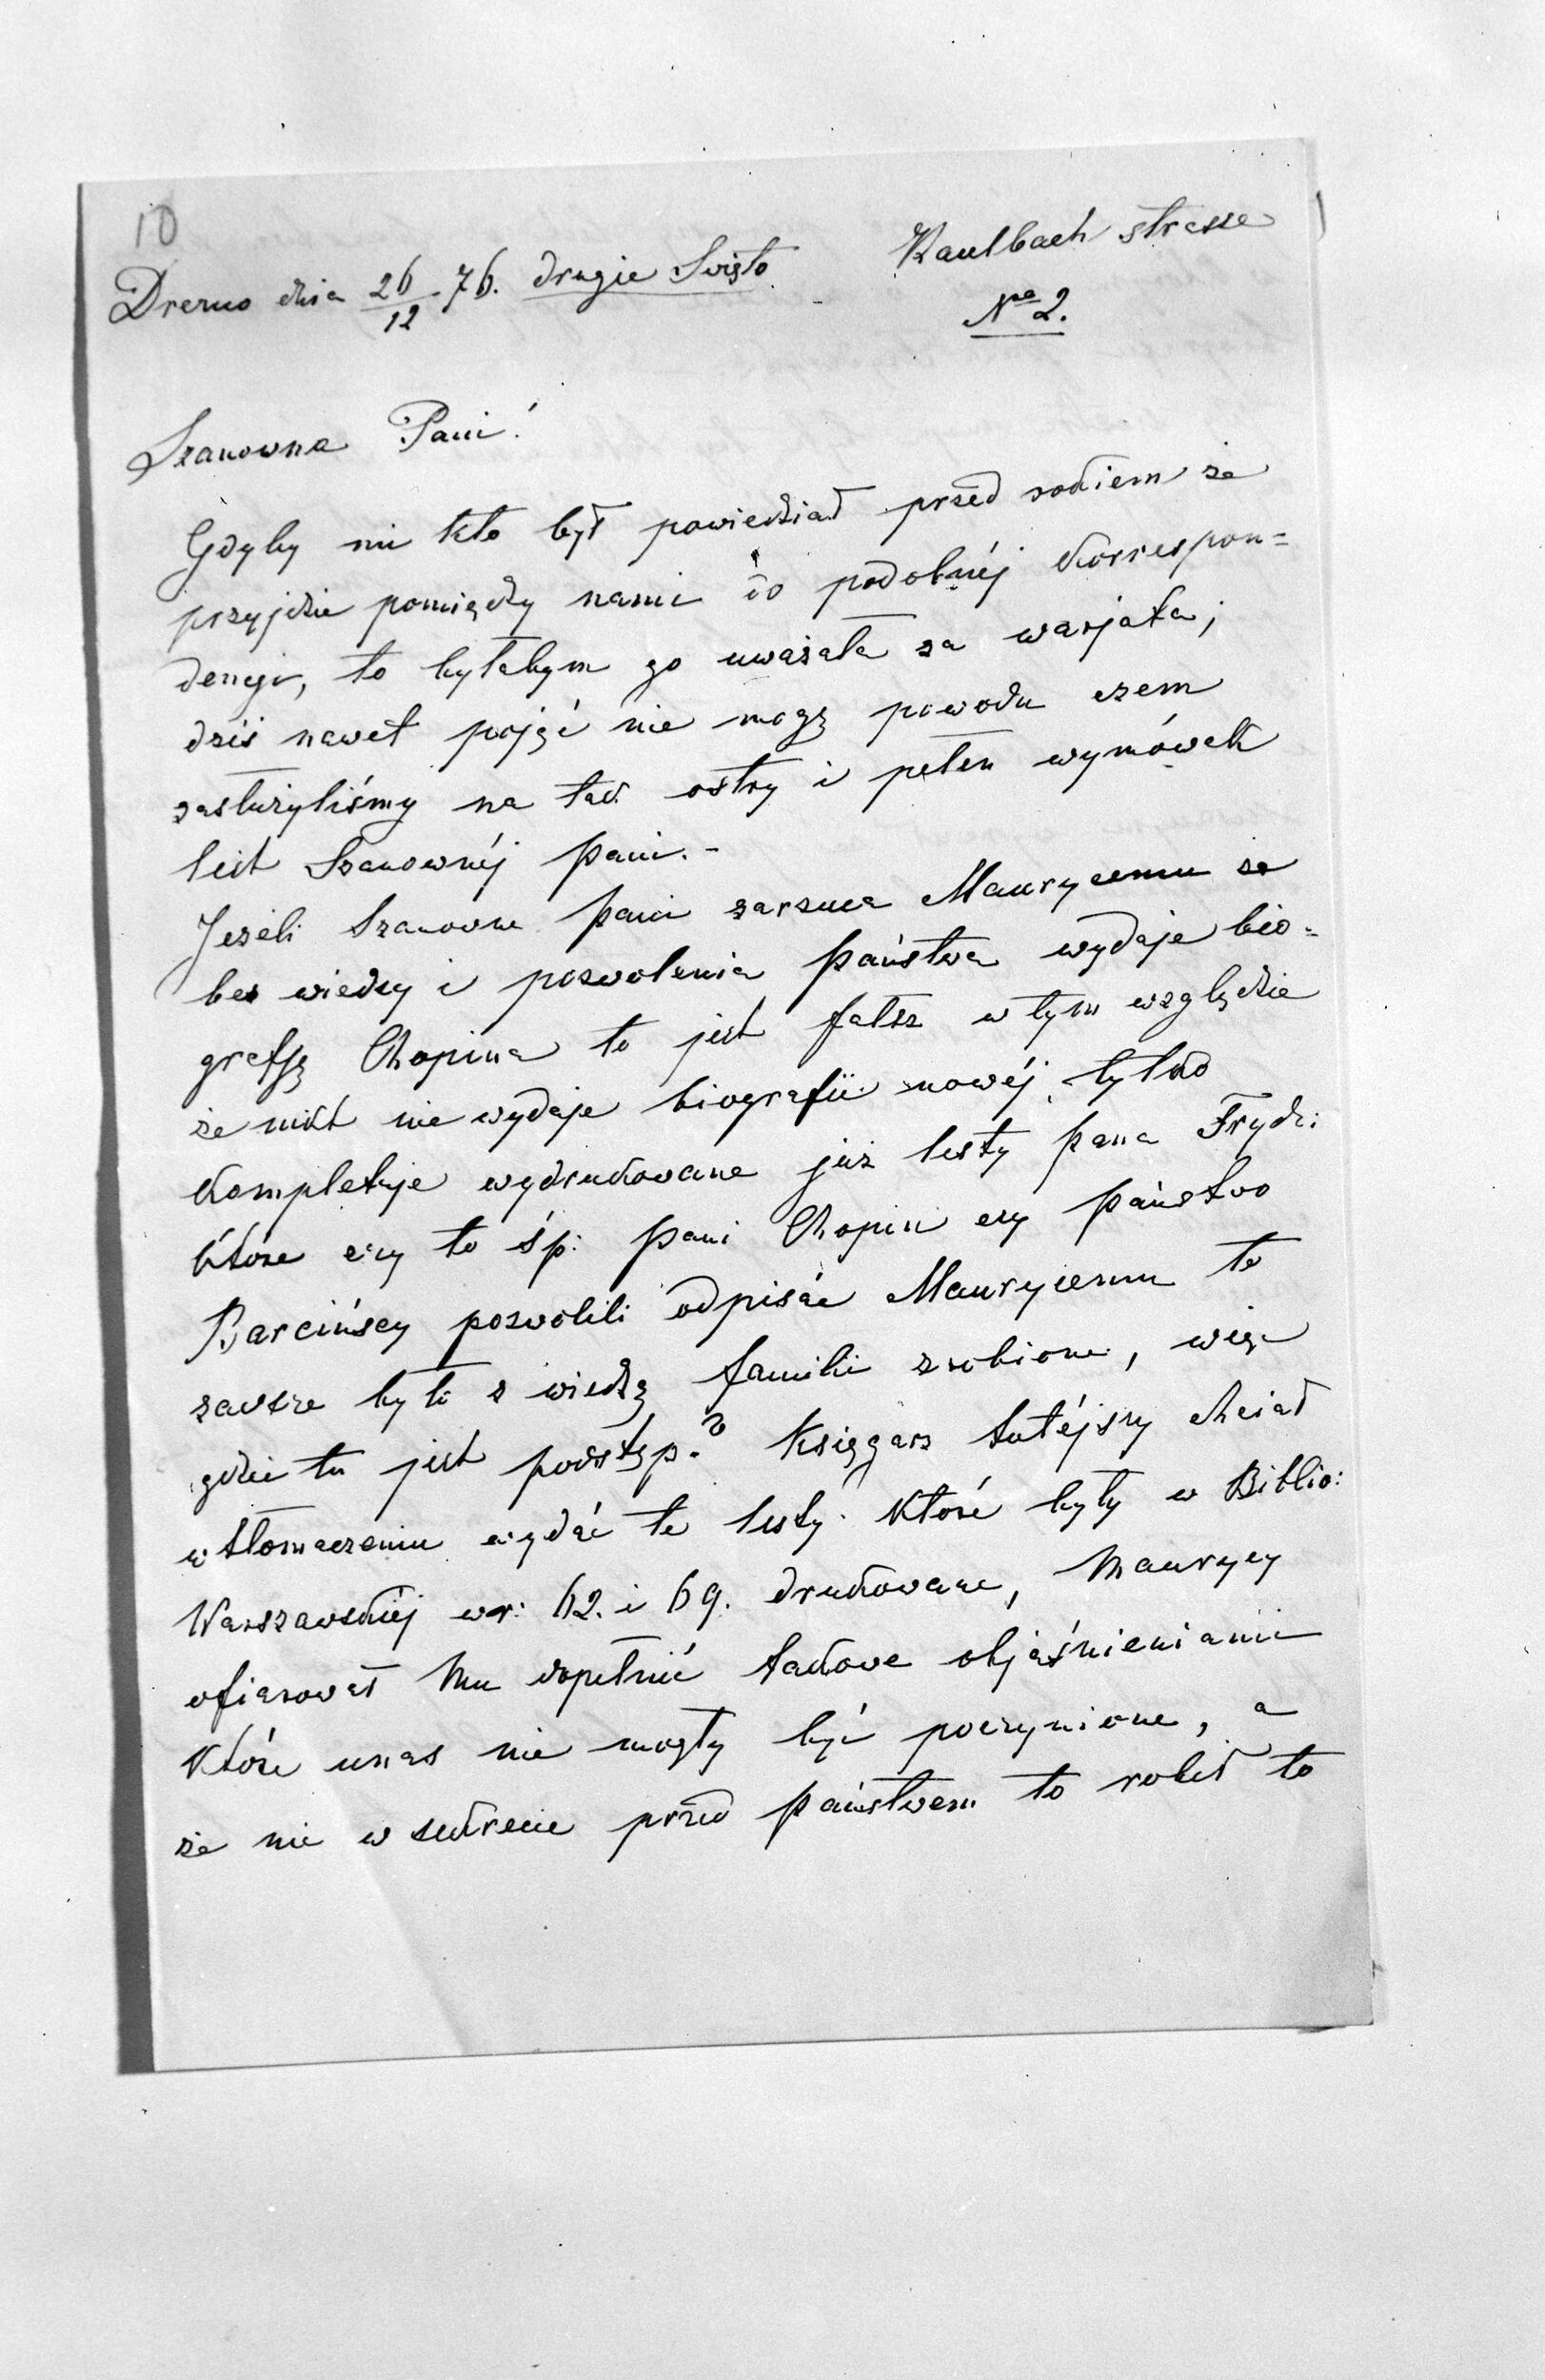 10
Drezno dnia 26/12 76. drugie Swięto
Kaulbach strasse
No 2.
Szanowna Pani!
Gdyby mi kto był powiedział przed rokiem że
przyjdzie pomiędzy nami do podobnéj korrespon=
dencyi, to byłabym go uważała za warjata;
dziś nawet pojąć nie mogę powodu czem
zasłużyliśmy na tak ostry i pełen wymówek
list Szanownéj pani.-
Jeżeli Szanowna pani zarzuca Maurycemu że
bez wiedzy i pozwolenia państwa wydaje bio=
grafję Chopina to jest fałsz w tym względzie
że nikt nie wydaje biografii nowéj tylko
kompletuje wydrukowane już listy pana Fryd:
które czy to śp: pani Chopin czy państwo
Barcińscy pozwolili odpisać Maurycemu to
zawsze było z wiedzą familii zrobione, więc
gdzie tu jest podstęp? Księgarz tutéjszy chciał
w tłomaczeniu wydać te listy które były w Biblio:
Warszawskiéj w r: 62. i 69. drukowane, Maurycy
ofiarował mu dopełnić takowe objaśnieniami
które u nas nie mogły być poczynione, a
że nie w sekrecie przed państwem to robił to